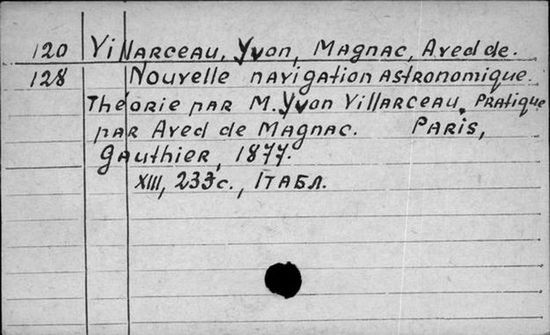 120 Villarceau, Yvon, Magnac, Aved de.
128 Nouvelle navigation astronomique.
Théorie par M. Yvon Villarceau. Pratique
par Aved de Magnac. Paris,
Gauthier, 1877.
XIII, 233с., 1табл.